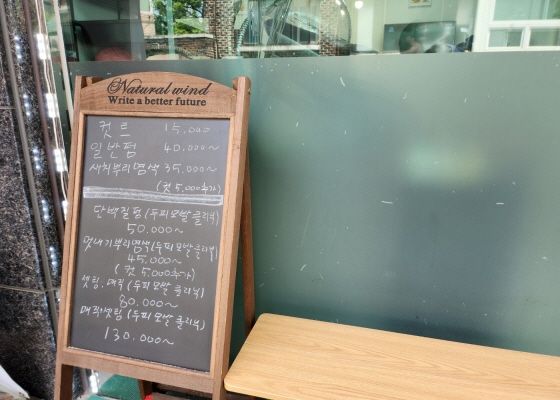 Natural wind
Write a better future
컷트 15,000
일반펌 40.000~
새치뿌리염색 35.000~
(컷 5,000추가)
단백질펌 (두피모발클리닉)
50.000~
멋내기뿌리염색(두피모발클리닉)
45.000~
(컷 5.000추가)
셋팅.매직 (두피모발클리닉)
80.000~
매직셋팅 (두피모발클리닉)
130.000~